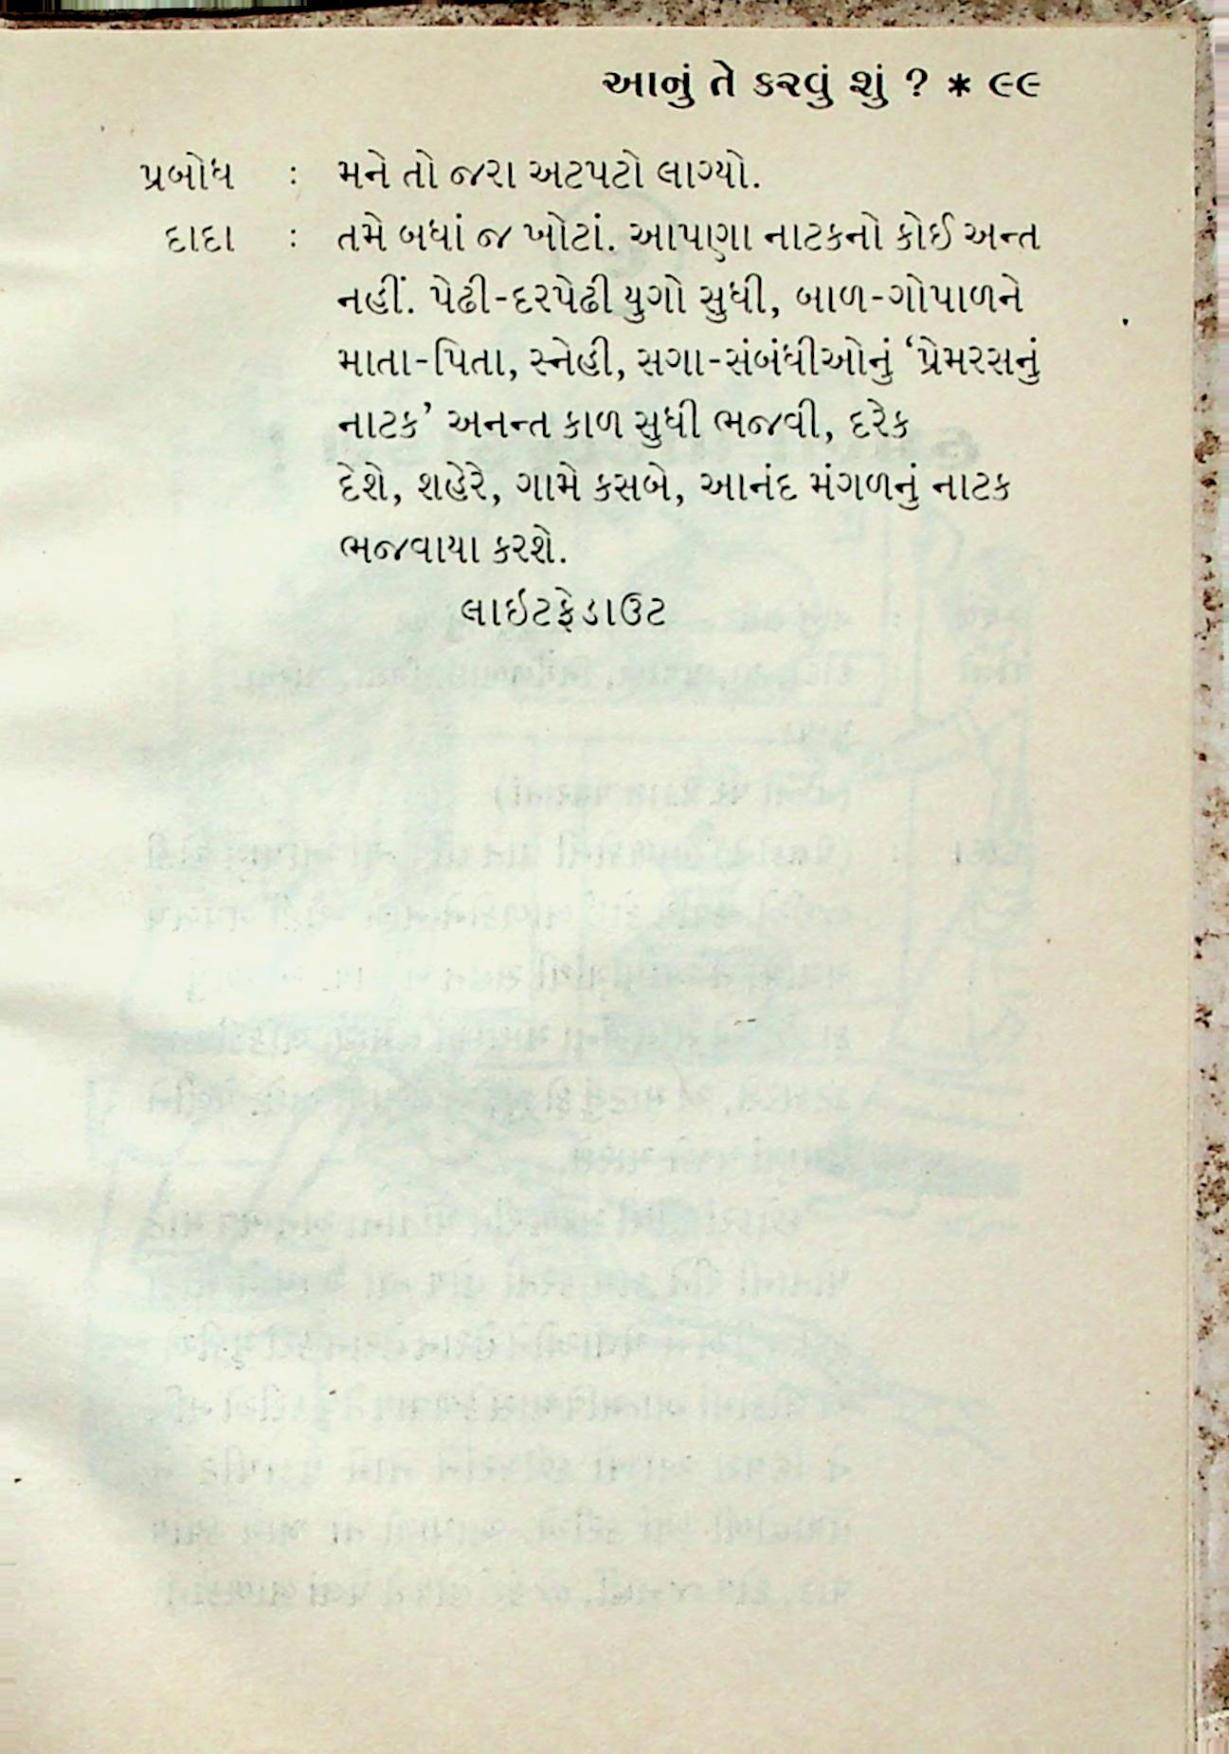 આનું તે કરવું શું ? * ૯૯
પ્રબોધ : મને તો જરા અટપટો લાગ્યો.
દાદા : તમે બધાં જ ખોટાં. આપણા નાટકનો કોઈ અન્ત
નહીં. પેઢી-દરપેઢી યુગો સુધી, બાળ-ગોપાળને
માતા-પિતા, સ્નેહી, સગા-સંબંધીઓનું ‘પ્રેમરસનું
નાટક’ અનન્ત કાળ સુધી ભજવી, દરેક
દેશે, શહેરે, ગામે કસબે, આનંદ મંગળનું નાટક
ભજવાયા કરશે.
લાઇટફેડાઉટ